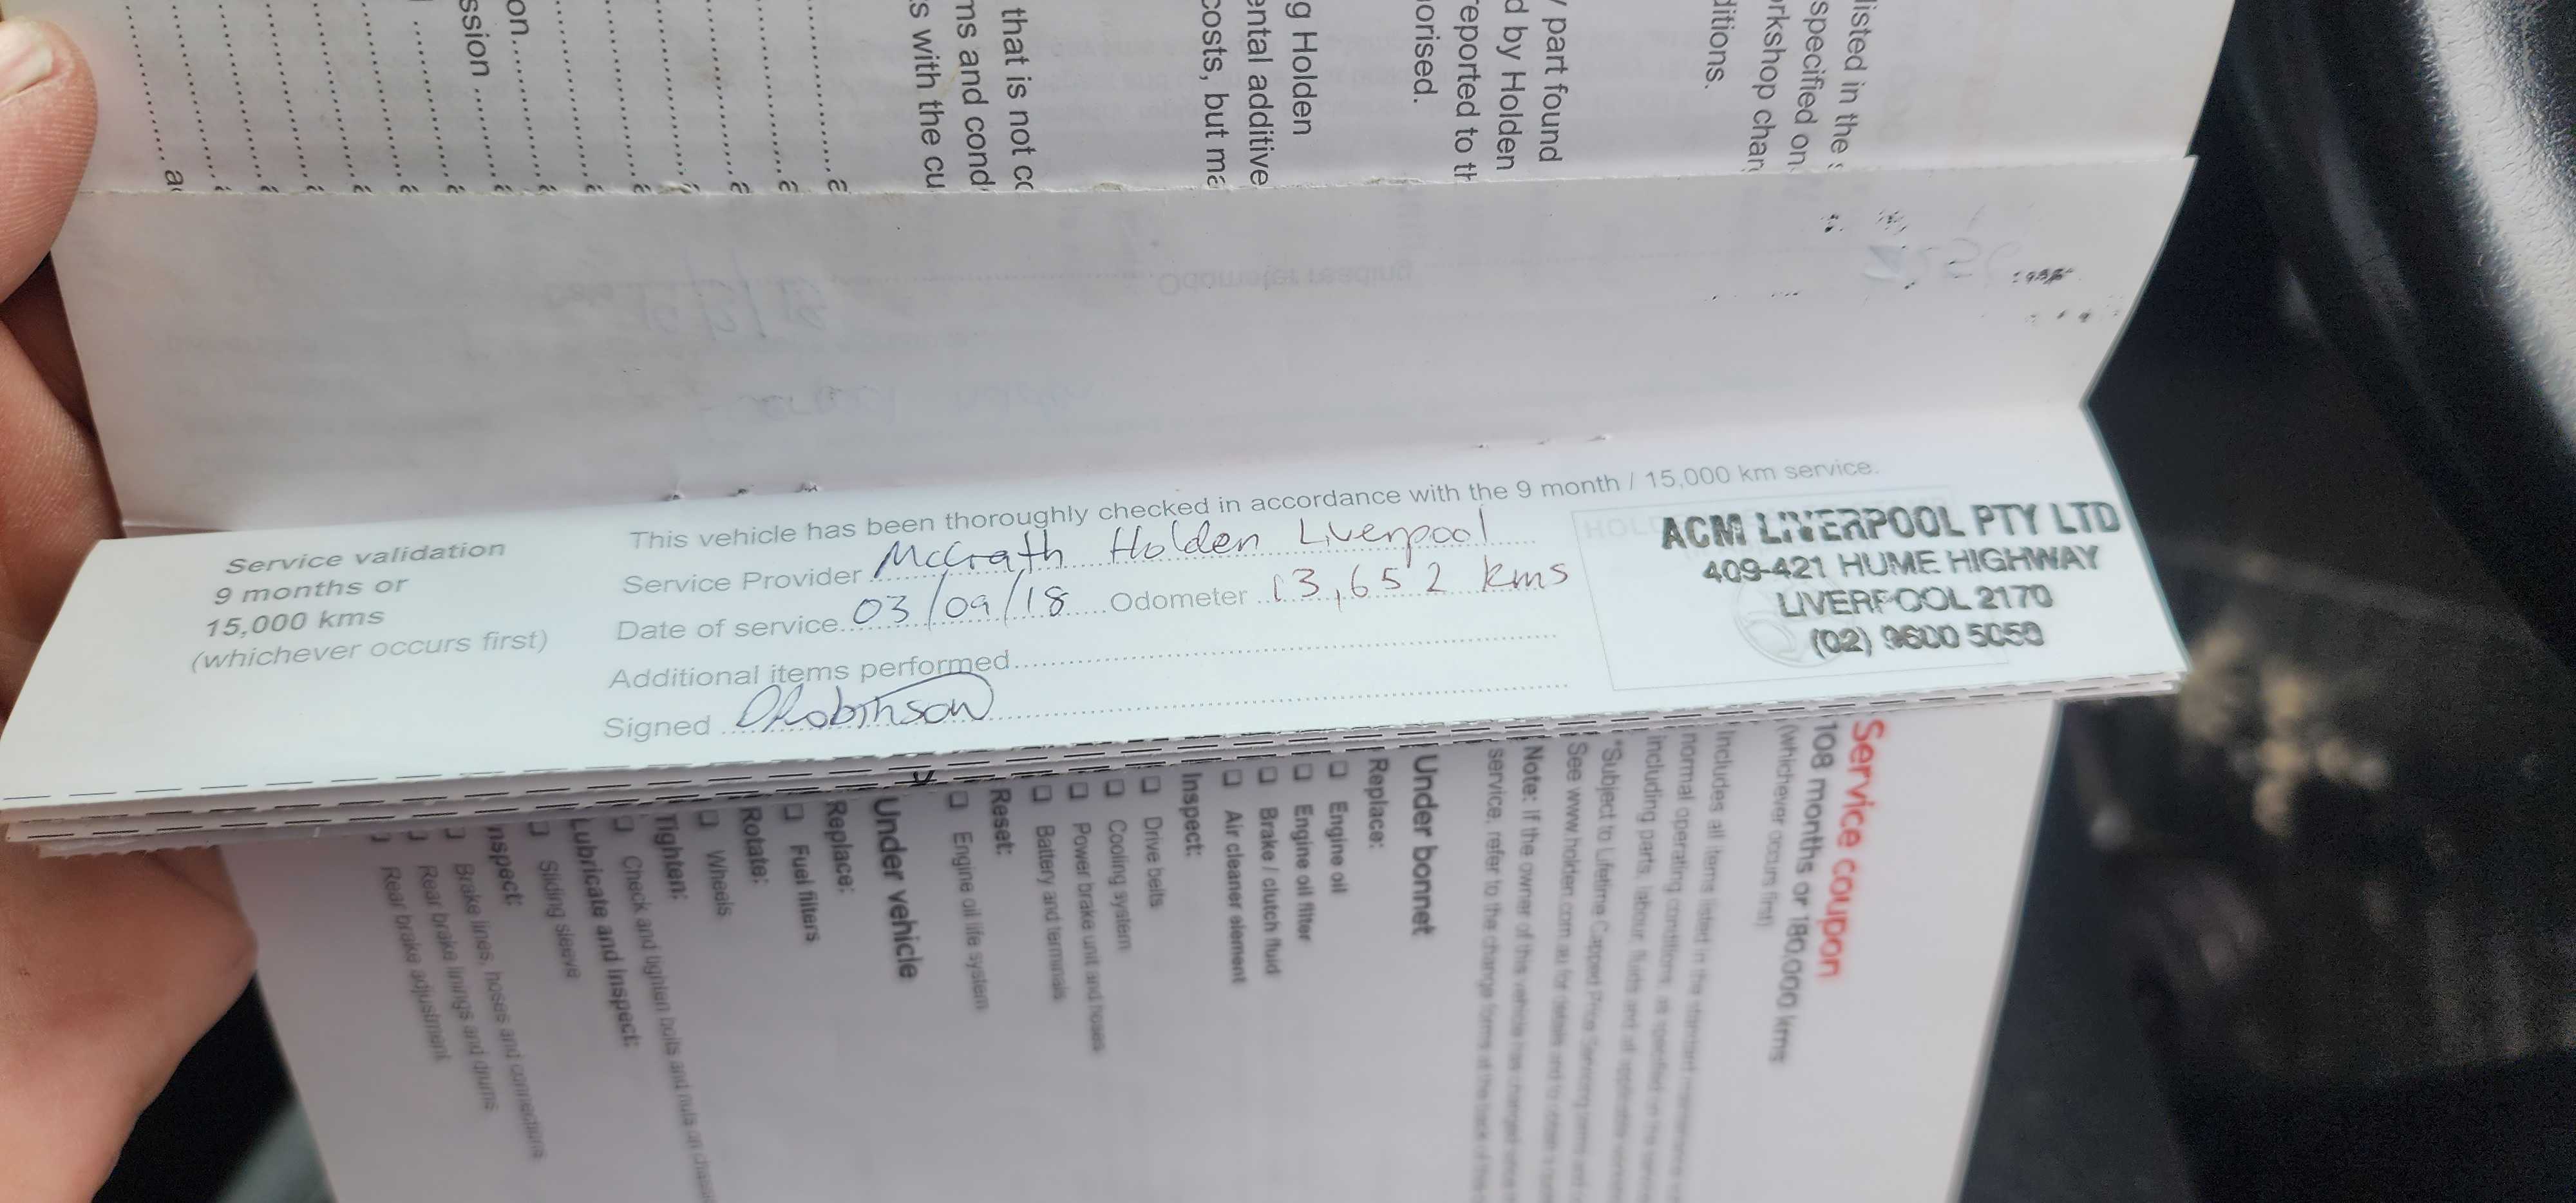 listed in the
specified on
rkshop char
ditions.
y part found
d by Holden
reported to th
orised.
g Holden
ental additive
costs, but ma
that is not co
ms and cond
s with the cu
on
ssion
Odometer reading
This vehicle has been thoroughly checked in accordance with the 9 month / 15,000 km service.
Service validation
9 months or
15,000 kms
(whichever occurs first)
Service Provider McGrath Holden Liverpool
Date of service 03/09/18 Odometer 13,652 kms
Additional items performed
Signed DRobinson
ACM LIVERPOOL PTY LTD
409-421 HUME HIGHWAY
LIVERPOOL 2170
(02) 9600 5059
Service coupon
108 months or 180,000 kms
(whichever occurs first)
Includes all items listed in the standard maintenance
normal operating conditions, as specified on the
including parts, labour, fluids and all applicable
*Subject to Lifetime Capped Price Servicing terms and
See www.holden.com.au for details and to obtain a
Note: If the owner of this vehicle has changed since
service, refer to the change forms at the back of this
Under bonnet
Replace:
Engine oil
Engine oil filter
Brake / clutch fluid
Air cleaner element
Inspect:
Drive belts
Cooling system
Power brake unit and hoses
Battery and terminals
Reset:
Engine oil life system
Under vehicle
Replace:
Fuel filters
Rotate:
Wheels
Tighten:
Check and tighten bolts and nuts on chassis
Lubricate and inspect:
Sliding sleeve
nspect:
Brake lines, hoses and connections
Rear brake linings and drums
Rear brake adjustment